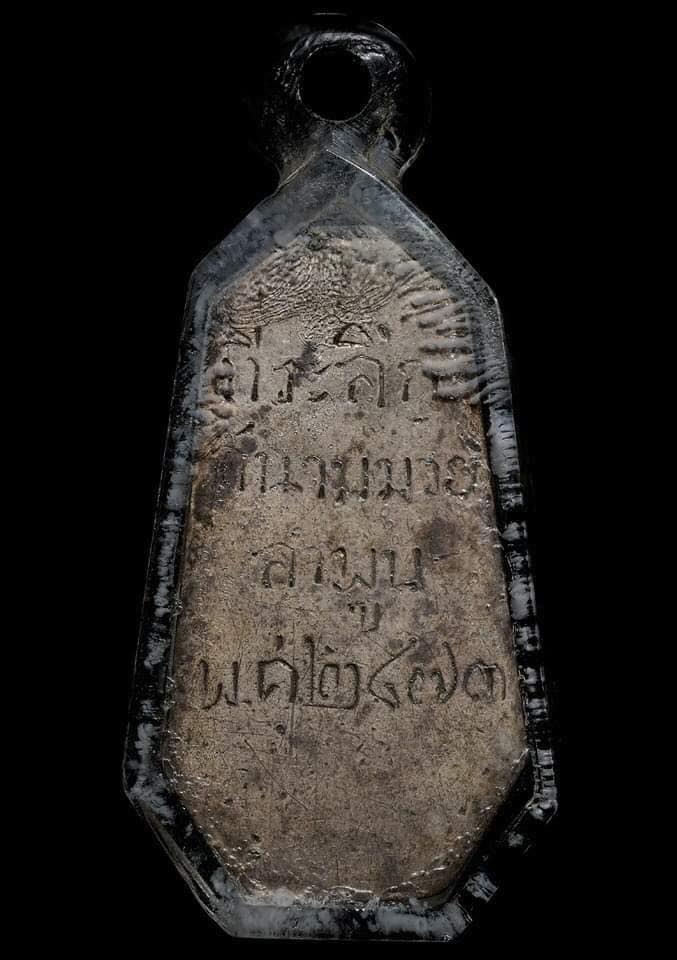 ที่ระลึก
สนามมวย
ลำพูน
พ.ศ ๒๔๗๓